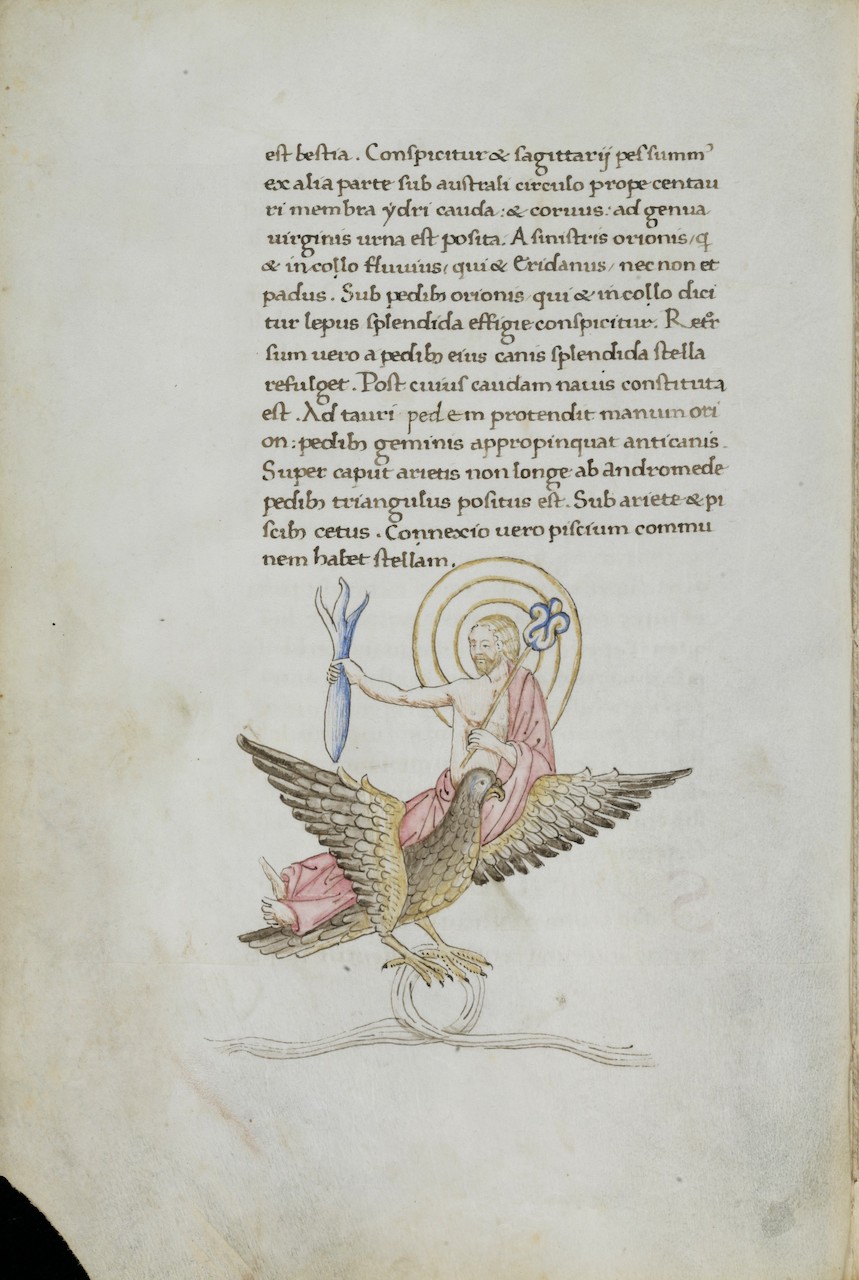 est bestia. Conspicitur & sagittarij pes summꝰ
ex alia parte sub australi circulo prope centau
ri membra ydri cauda: & coruus: ad genua
uirginis urna est posita. A sinistris orionis, q̨
& in collo fluuius, qui & Eridanus, nec non et
padus. Sub pedib; orionis qui & in collo dici
tur lepus splendida effigie conspicitur. Retr̄
sum uero a pedib; eius canis splendida stella
refulget. Post cuius caudam nauis constituta
est. Ad tauri pedem protendit manum ori
on: pedib; geminis appropinquat anticanis.
Super caput arietis non longe ab andromede
pedib; triangulus positus est. Sub ariete & pi
scib; cetus. Connexio uero piscium commu
nem habet stellam.